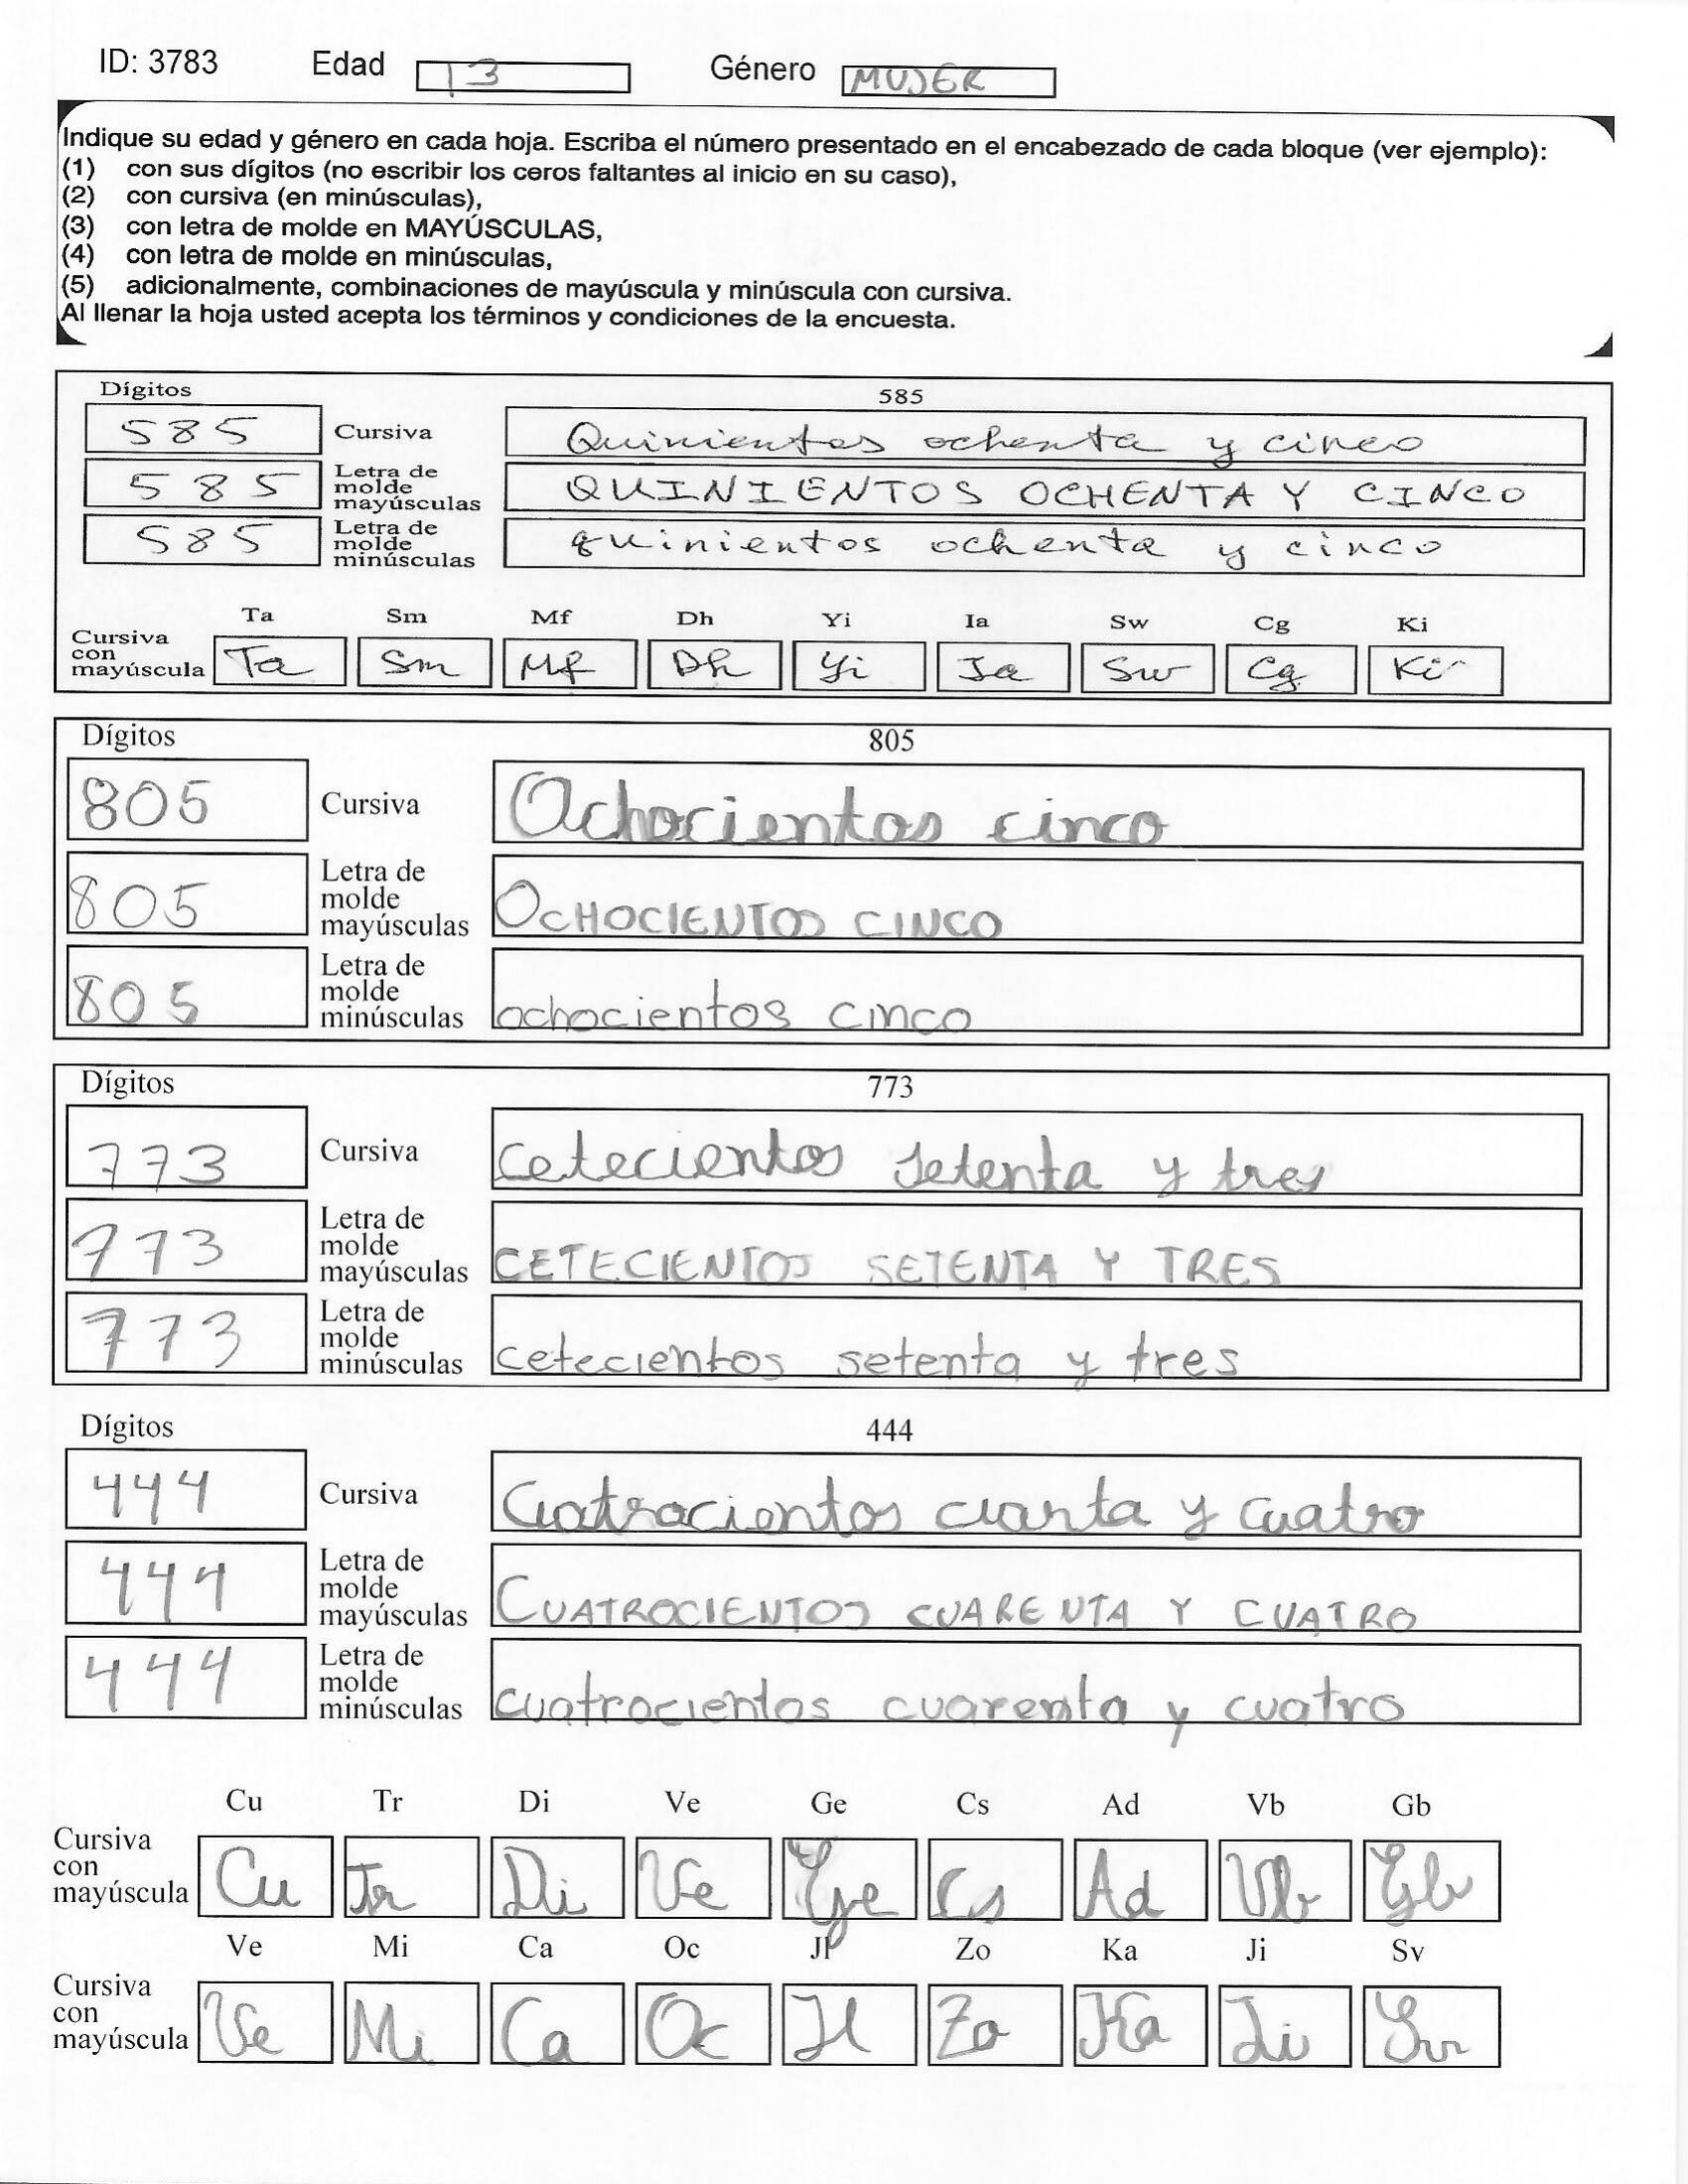 ID: 3783 Edad 13 Género MUJER
Indique su edad y género en cada hoja. Escriba el número presentado en el encabezado de cada bloque (ver ejemplo):
(1) con sus dígitos (no escribir los ceros faltantes al inicio en su caso),
(2) con cursiva (en minúsculas),
(3) con letra de molde en MAYÚSCULAS,
(4) con letra de molde en minúsculas,
(5) adicionalmente, combinaciones de mayúscula y minúscula con cursiva.
Al llenar la hoja usted acepta los términos y condiciones de la encuesta.
Dígitos 585
585 Cursiva Quinientos ochenta y cinco
585 Letra de molde mayúsculas QUINIENTOS OCHENTA Y CINCO
585 Letra de molde minúsculas quinientos ochenta y cinco
Ta Sm Mf Dh Yi Ia Sw Cg Ki
Cursiva con mayúscula Ta Sm Mf Dh Yi Ia Sw Cg Ki
Dígitos 805
805 Cursiva Ochocientos cinco
805 Letra de molde mayúsculas OCHOCIENTOS CINCO
805 Letra de molde minúsculas ochocientos cinco
Dígitos 773
773 Cursiva cetecientos setenta y tres
773 Letra de molde mayúsculas CETECIENTOS SETENTA Y TRES
773 Letra de molde minúsculas cetecientos setenta y tres
Dígitos 444
444 Cursiva Cuatrocientos cuarnta y cuatro
444 Letra de molde mayúsculas CUATROCIENTOS CUARENTA Y CUATRO
444 Letra de molde minúsculas cuatrocientos cuarenta y cuatro
Cu Tr Di Ve Ge Cs Ad Vb Gb
Cursiva con mayúscula Cu Tr Di Ve Ge Cs Ad Vb Gb
Ve Mi Ca Oc Jl Zo Ka Ji Sv
Cursiva con mayúscula Ve Mi Ca Oc Jl Zo Ka Ji Sv